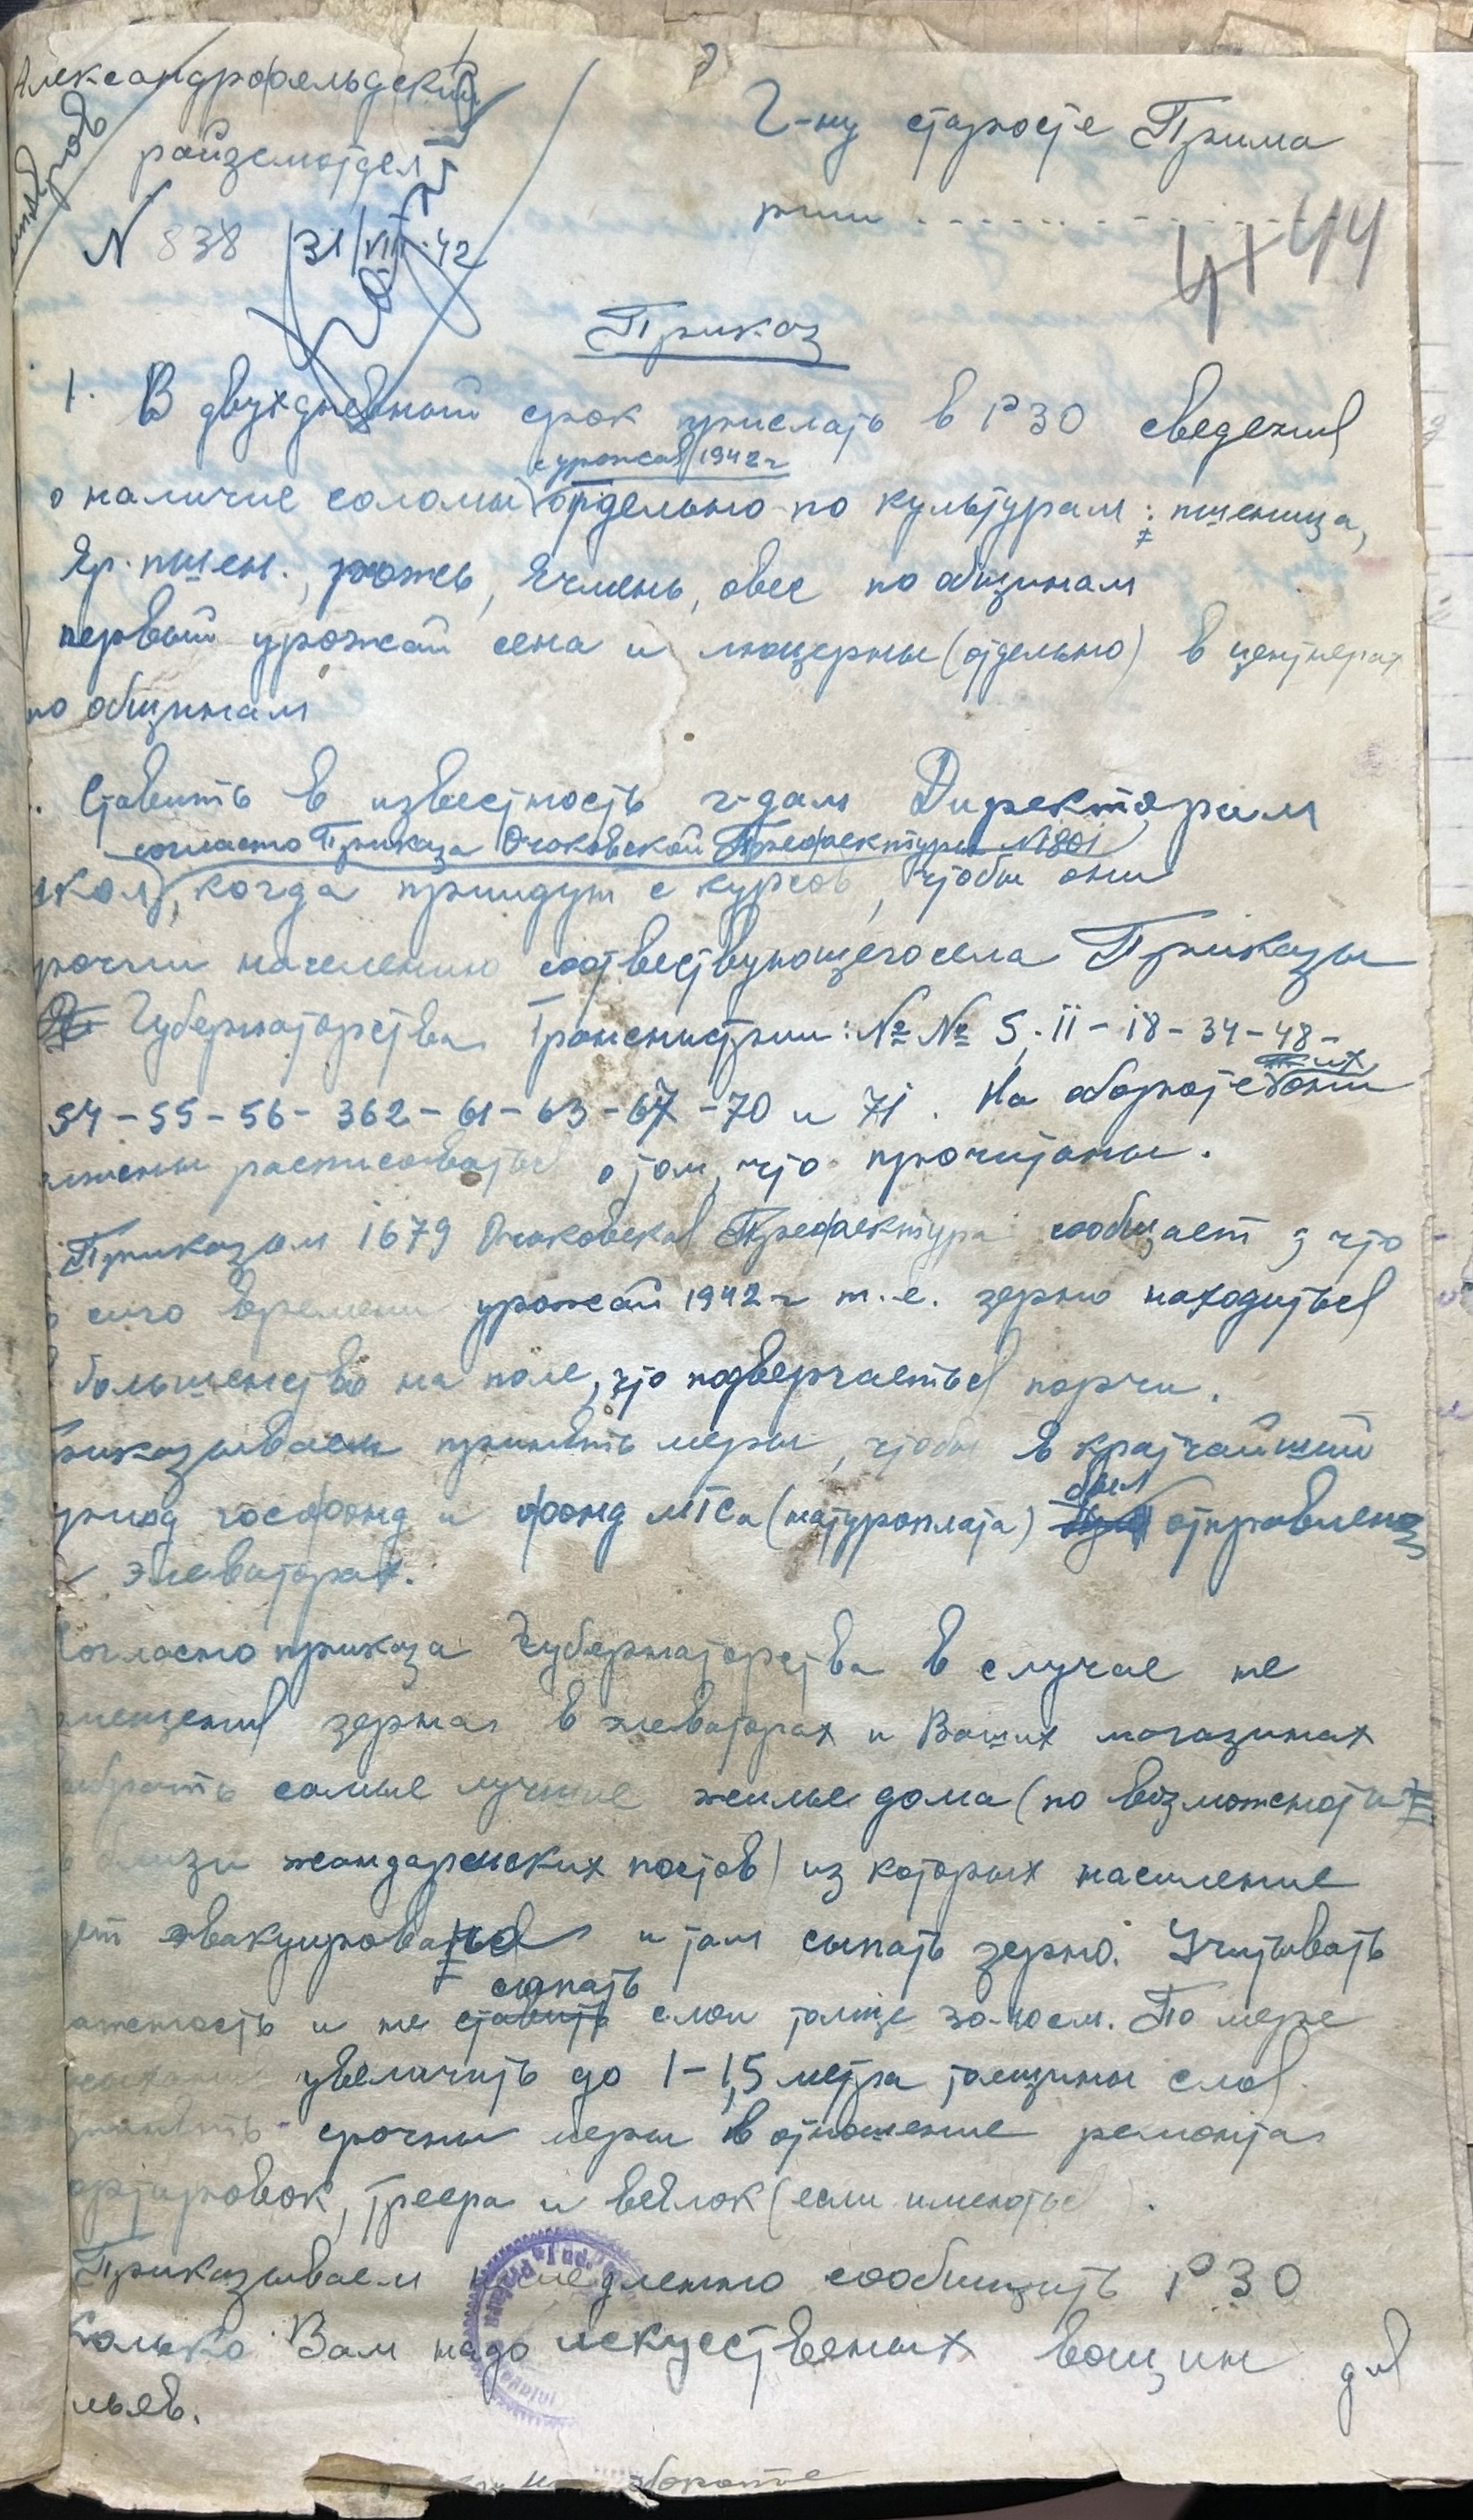 Александрофельдский
райземотдел
N 838 31/VII-42
Г-ну старосте Прима
рии . . . . . . . . . . .
44
Приказ
1. В двухдневный срок прислать в РЗО сведения
с урожая 1942 г
о наличие соломы отдельно по культурам: пшеница,
яр. пшен., рожь, ячмень, овес по общинам
первый урожай сена и люцерны (отдельно) в центнерах
по общинам
Ставить в известность г-дам Директорам
согласно Приказа Очаковской Префектуры N 1801
школ, когда приидут с курсов, чтобы они
рочли населению соотвествующего села Приказы
Губернаторства Транснистрии: №№ 5, 11 - 18 - 34 - 48 -
их
54 - 55 - 56 - 362 - 61 - 63 - 67 - 70 и 71. На обороте они
лжены расписоваться о том, что прочитаны.
Приказом 1679 Очаковская Префектура сообщает, что
сиго времени урожай 1942 г т.е. зерно находиться
большенстве на поле, что подвергаеться порчи.
риказываем принять меры, чтобы в кратчайший
риод госфонд и фонд МТСа (натуроплата)
был
отправлен
элеваторах.
Согласно приказа Губернаторства в случае не
мещения зерна в элеваторах и Ваших магазинах
ыбрать самые лучшие жилые дома (по возможности
близи жандармских постов) из которых население
ет эвакуировано и там сыпать зерно. Учитывать
сыпать
ажность и не ставить слои толще 30-40 см. По мере
увеличить до 1 - 1,5 метра толщины слоя.
ринять срочны меры в отношение ремонта
ортировок, треера и веялок (если имеються).
Приказываем немедленно сообщить РЗО
колько Вам надо искуственых вощин для
льев.
на обороте